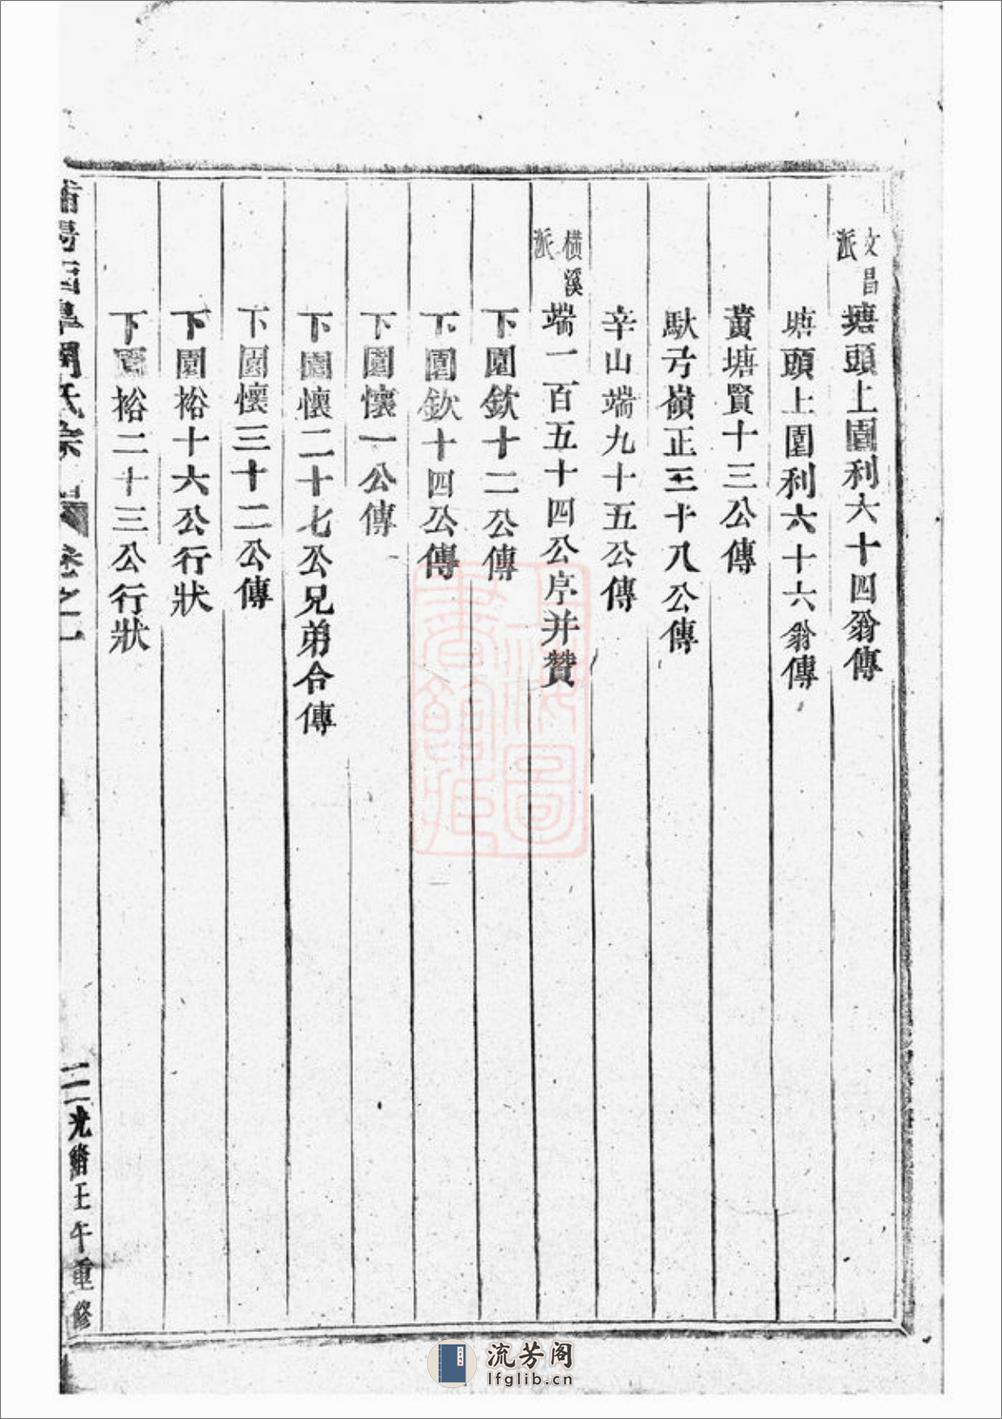 文昌派
塘頭上園利六十四翁傳
塘頭上園利六十六翁傳
黃塘賢十三公傳
馱弓嶺正三十八公傳
辛山端九十五公傳
橫溪派
端一百五十四公序并贊
下園欽十二公傳
下園欽十四公傳
下園懷一公傳
下園懷二十七公兄弟合傳
下園懷三十二公傳
下園裕十六公行狀
下園裕二十三公行狀
卷之一
二
光緒壬午重修
上海圖書館藏
流芳阁
lfglib.cn